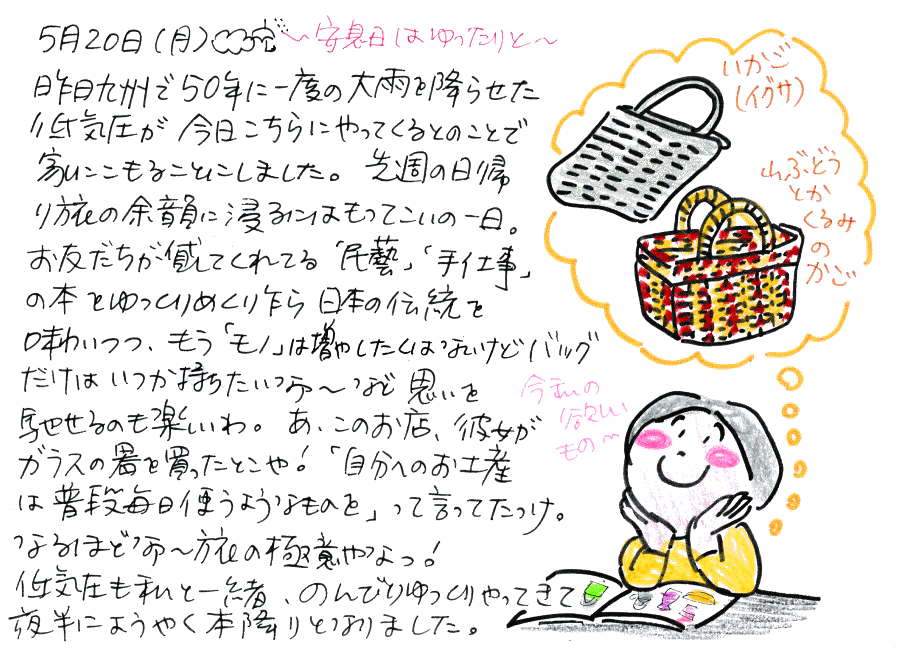 5月20日(月) 〜安息日はゆったりと〜
昨日九州で50年に一度の大雨を降らせた
低気圧が今日こちらにやってくるとのことで
家にこもることにしました。先週の日帰
り旅の余韻に浸るにはもってこいの一日。
お友だちが貸してくれてる「民藝」「手仕事」
の本をゆっくりめくり乍ら日本の伝統を
味わいつつ、もう「モノ」は増やしたくはないけどバッグ
だけはいつか持ちたいなぁ〜など思いを
馳せるのも楽しいわ。あ、このお店、彼女が
ガラスの器を買ったとこや!「自分へのお土産
は普段毎日使うようなものを」って言ってたっけ。
なるほどなぁ〜旅の極意やなっ!
低気圧も私と一緒、のんびりゆっくりやってきて
夜半にようやく本降りとなりました。
いかご
(イグサ)
山ぶどう
とか
くるみ
の
かご
今私の
欲しい
もの〜